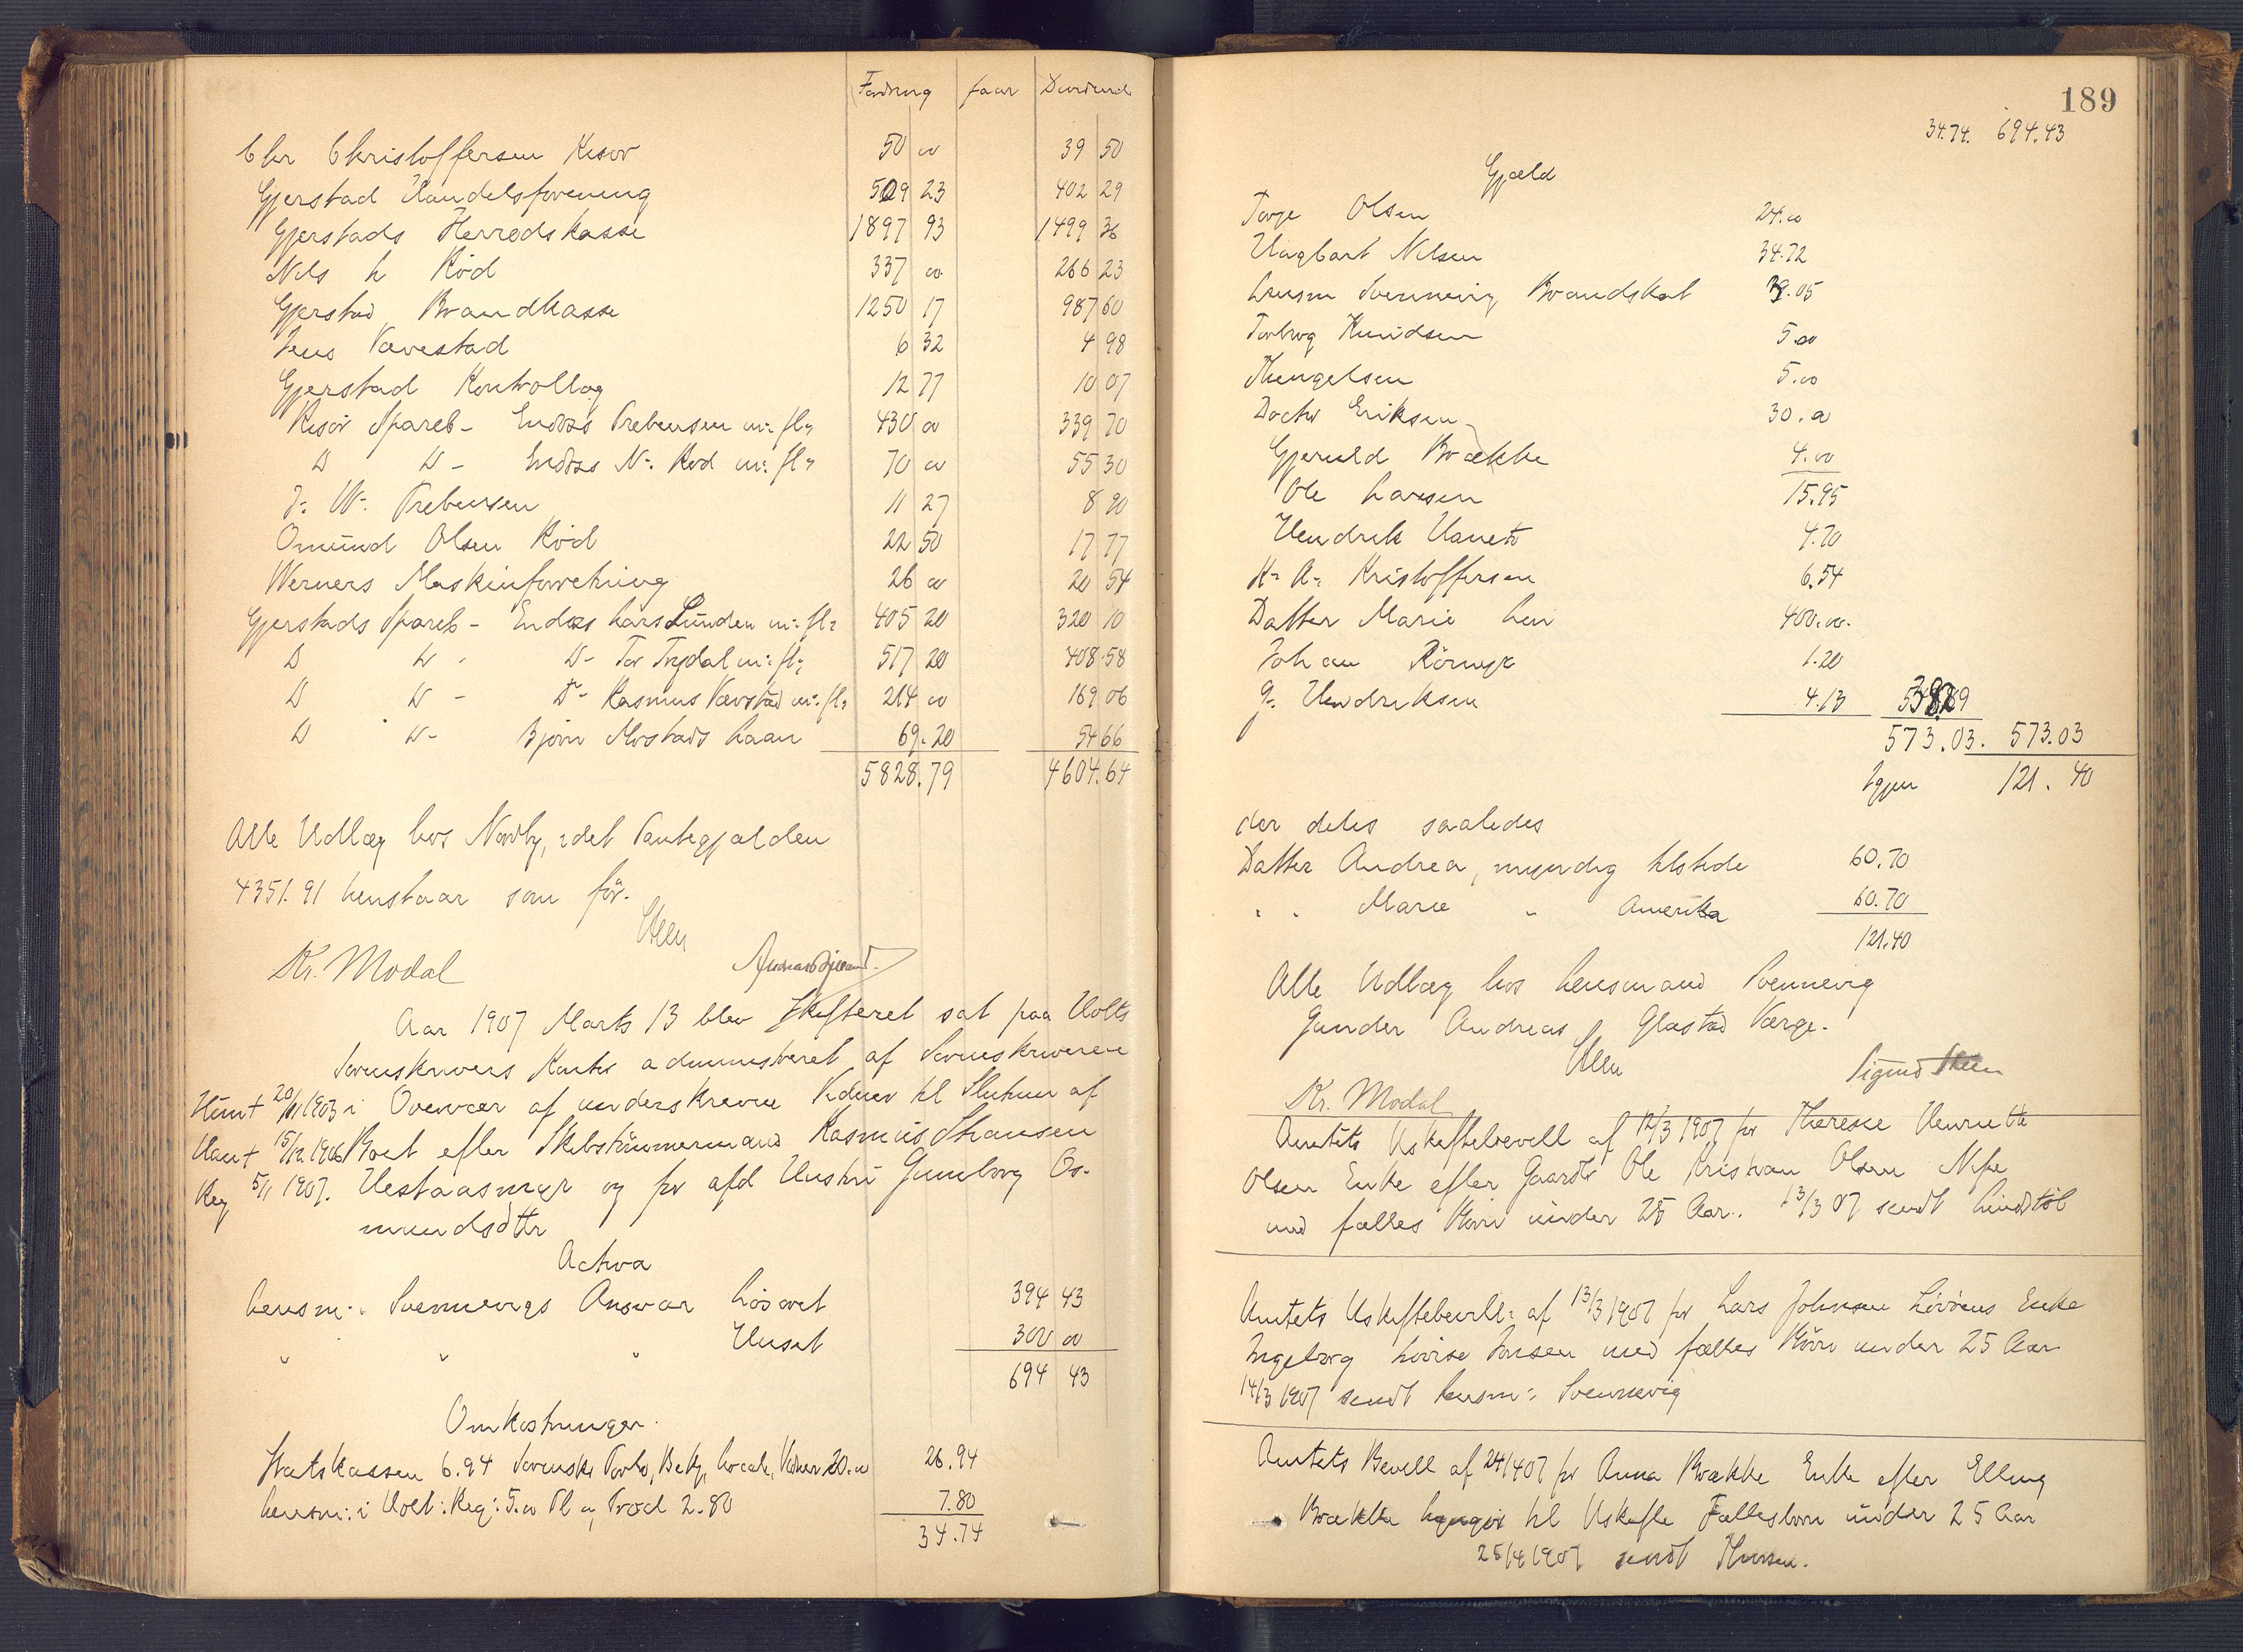 Fordring faar Dividende
Chr Christoffersen Risør 50 00 39 50
Gjerstad Handelsforening 509 23 402 29
Gjerstads Herredskasse 1897 93 1499 36
Nils L Rød 337 00 266 23
Gjerstad Brandkasse 1250 17 987 60
Jens Vævestad 6 32 4 98
Gjerstad Kontrollag 12 77 10 07
Risør Spareb- Endoss Prebensen m: fl: 430 00 339 70
D D - Endoss N: Rød m: fl: 70 00 55 30
J: W: Prebensen 11 27 8 90
Omund Olsen Rød 22 50 17 77
Werners Maskinforretning 26 00 20 54
Gjerstads Spareb- Endoss Lars Lunden m: fl: 405 20 320 10
D D - D- Tor Trydal m: fl: 517 20 408.58
D D - D- Rasmus Vævstad m: fl: 214 00 169 06
D D- Bjørn Mostads Laan 69.20 54 66
5828.79 4604.64
Alle Udlæg hos Nordby, idet Pantegjælden
4351.91 henstaar som før.
Kr. Modal
Aar 1907 Marts 13 blev Skifteret sat paa Holts
Sorenskrivers Kontor administreret af Sorenskriveren
Hun + 20/11 1903 i Overvær af underskrevne Vidner til Slutning af
Han + 15/12 1906 Boet efter Skibstømmermand Rasmus Hansen
Reg 5/1 1907. Hestaasmyr og for afd Hustru Gunborg Os-
mundsdtr
Activa
Lensm: Svennevigs Ansvar Løsøret 394 43
" " " Huset 300 00
694 43
Omkostninger.
Statskassen 6.94 Sorenskr Porto, Bekj, Locale, Vidner 20.00 26.94
Lensm: i Holt: Reg: 5.00 Pl og Prod 2.80 7.80
34.74
189
34.74. 694.43
Gjæld
Torje Olsen 24.00
Hagbart Nilsen 34.72
Lensm Svennevig Brandskat 39.05
Torborg Knudsen 5.00
Thengelsen 5.00
Doctor Eriksen 30.00
Gjeruld Brække 4.00
Ole Larsen 15.95
Hendrik Haneto 4.70
K: A: Kristoffersen 6.54
Datter Marie Løn 400.00.
Johan Rørmyr 1.20
G: Hendriksen 4.13
573.03. 573.03
Igjen 121. 40
der deles saaledes
Datter Andrea, myndig tilstede 60.70
" " Marie " Amerika 60.70
121.40
Alle Udlæg hos Lensmand Svennevig
Gunder Andreas Glastad Værge.
Sigurd Steen
Kr. Modal
Amtets Uskiftebevill af 12/3 1907 for Therese Henriette
Olsen Enke efter Gaardbr Ole Kristian Olsen Nipe
med fælles Børn under 25 Aar. 13/3 07 sendt Lindtøl
Amtets Uskiftebevill: af 13/3 1907 for Lars Johnsen Løvøens Enke
Ingeborg Lovise Jonsen med fælles Børn under 25 Aar
14/3 1907 sendt Lensm: Svennevig
Amtets Bevill af 24/4 07 for Anna Brække Enke efter Elling
Brække til Uskifte Fællesborn under 25 Aar
25/4 1907 sendt